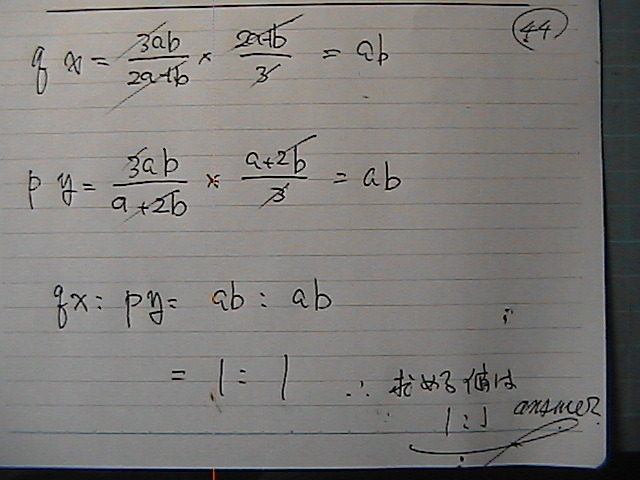 44
qx = 3ab/2a+b × 2a+b/3 = ab
py = 3ab/a+2b × a+2b/3 = ab
qx : py = ab : ab
= 1 : 1 ∴ 求める値は
1 : 1 answer